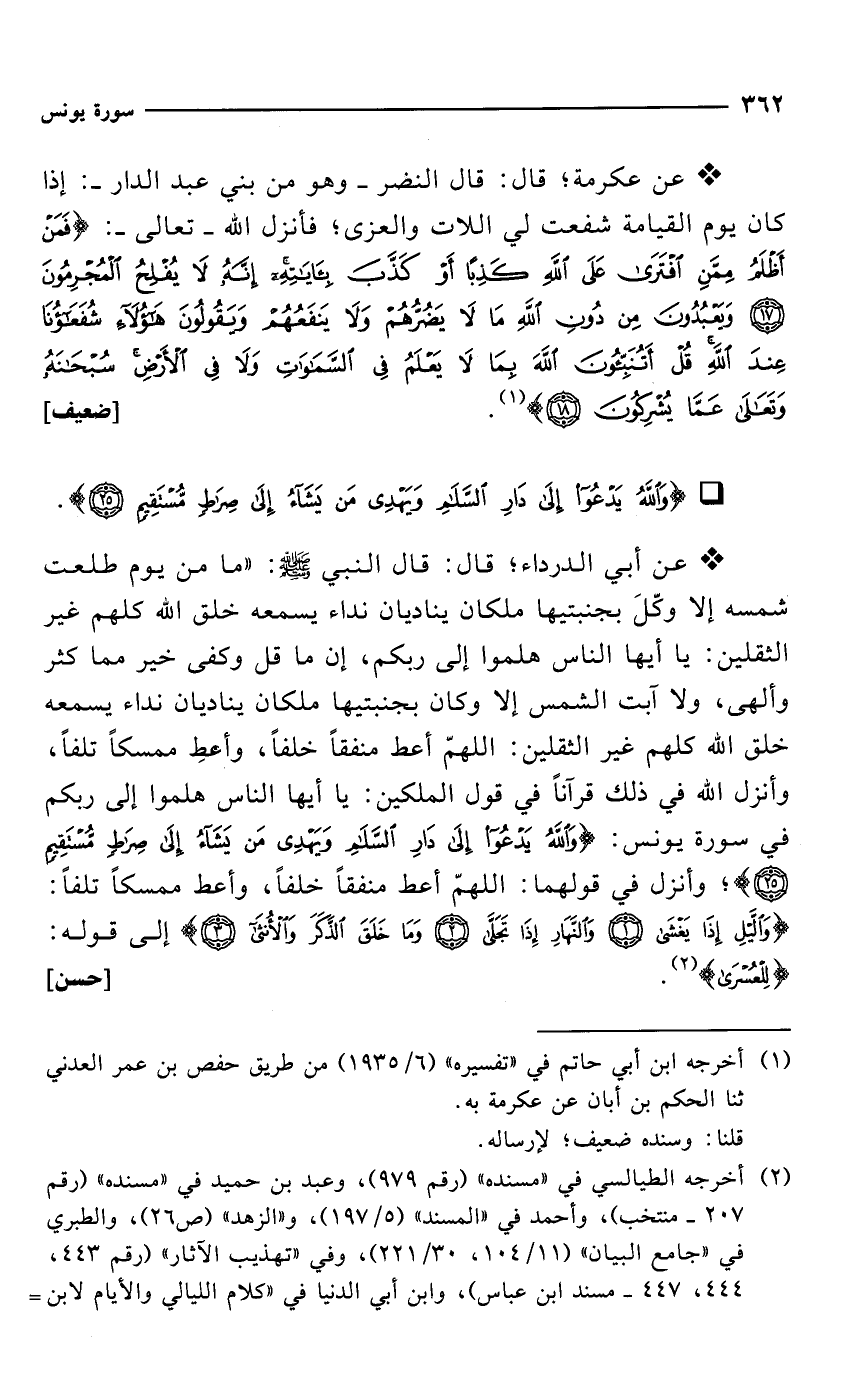 ٣٦٢ سورة يونس
❖ عن عكرمة؛ قال: قال النضر ـ وهو من بني عبد الدار ـ: إذا
كان يوم القيامة شفعت لي اللات والعزى؛ فأنزل الله ـ تعالى ـ: ﴿فَمَنْ
أَظْلَمُ مِمَّنِ ٱفْتَرَىٰ عَلَى ٱللَّهِ كَذِبًا أَوْ كَذَّبَ بِـَٔايَـٰتِهِۦٓ ۚ إِنَّهُۥ لَا يُفْلِحُ ٱلْمُجْرِمُونَ
﴿١٧﴾ وَيَعْبُدُونَ مِن دُونِ ٱللَّهِ مَا لَا يَضُرُّهُمْ وَلَا يَنفَعُهُمْ وَيَقُولُونَ هَـٰٓؤُلَآءِ شُفَعَـٰٓؤُنَا
عِندَ ٱللَّهِ ۚ قُلْ أَتُنَبِّـُٔونَ ٱللَّهَ بِمَا لَا يَعْلَمُ فِى ٱلسَّمَـٰوَٰتِ وَلَا فِى ٱلْأَرْضِ ۚ سُبْحَـٰنَهُۥ
وَتَعَـٰلَىٰ عَمَّا يُشْرِكُونَ ﴿١٨﴾﴾(١). [ضعيف]
❑ ﴿وَٱللَّهُ يَدْعُوٓا۟ إِلَىٰ دَارِ ٱلسَّلَـٰمِ وَيَهْدِى مَن يَشَآءُ إِلَىٰ صِرَٰطٍ مُّسْتَقِيمٍ ﴿٢٥﴾﴾.
❖ عن أبي الدرداء؛ قال: قال النبي ﷺ: «ما من يوم طلعت
شمسه إلا وكّلَ بجنبتيها ملكان يناديان نداء يسمعه خلق الله كلهم غير
الثقلين: يا أيها الناس هلموا إلى ربكم، إن ما قل وكفى خير مما كثر
وألهى، ولا آبت الشمس إلا وكان بجنبتيها ملكان يناديان نداء يسمعه
خلق الله كلهم غير الثقلين: اللهمّ أعط منفقاً خلفاً، وأعطِ ممسكاً تلفاً،
وأنزل الله في ذلك قرآناً في قول الملكين: يا أيها الناس هلموا إلى ربكم
في سورة يونس: ﴿وَٱللَّهُ يَدْعُوٓا۟ إِلَىٰ دَارِ ٱلسَّلَـٰمِ وَيَهْدِى مَن يَشَآءُ إِلَىٰ صِرَٰطٍ مُّسْتَقِيمٍ
﴿٢٥﴾﴾؛ وأنزل في قولهما: اللهمّ أعط منفقاً خلفاً، وأعط ممسكاً تلفاً:
﴿وَٱلَّيْلِ إِذَا يَغْشَىٰ ﴿١﴾ وَٱلنَّهَارِ إِذَا تَجَلَّىٰ ﴿٢﴾ وَمَا خَلَقَ ٱلذَّكَرَ وَٱلْأُنثَىٰٓ ﴿٣﴾﴾ إلى قوله:
﴿لِلْعُسْرَىٰ﴾(٢). [حسن]
(١) أخرجه ابن أبي حاتم في «تفسيره» (٦/ ١٩٣٥) من طريق حفص بن عمر العدني
ثنا الحكم بن أبان عن عكرمة به.
قلنا: وسنده ضعيف؛ لإرساله.
(٢) أخرجه الطيالسي في «مسنده» (رقم ٩٧٩)، وعبد بن حميد في «مسنده» (رقم
٢٠٧ ـ منتخب)، وأحمد في «المسند» (٥/ ١٩٧)، و«الزهد» (ص٢٦)، والطبري
في «جامع البيان» (١١/ ١٠٤، ٣٠/ ٢٢١)، وفي «تهذيب الآثار» (رقم ٤٤٣،
٤٤٤، ٤٤٧ ـ مسند ابن عباس)، وابن أبي الدنيا في «كلام الليالي والأيام لابن =